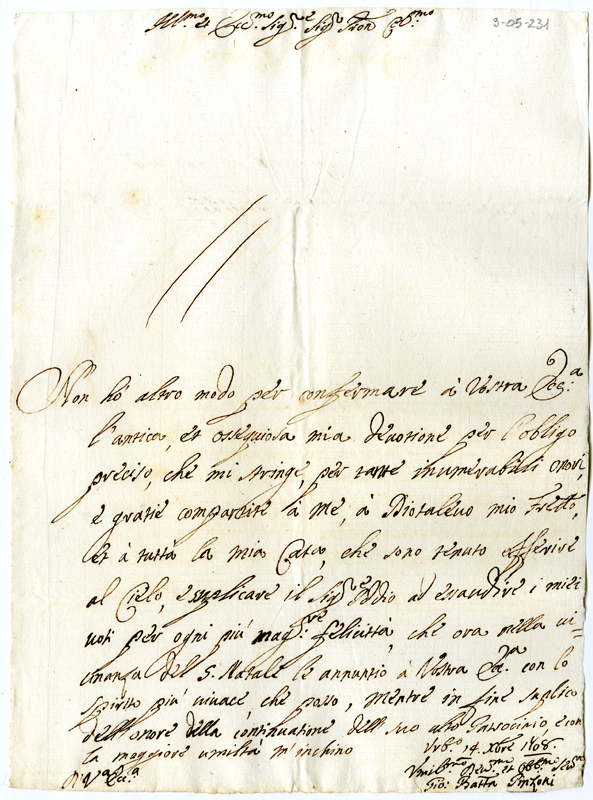 Ill.mo et Ecc.mo Sig.re Sig.r Pron Col.mo
3-05-231
Non hò altro modo per confermare à Vostra Ecc.a
l'antica, et ossequiosa mia devotione per l'obligo
preciso, che mi stringe, per tante inumerabili onori,
e gratie compartite à me, à Diotalevo mio Fretto,
et à tutta la mia Casa, che sono tenuto offerire
al Cielo, e suplicare il Sig.re Iddio ad esaudire i miei
voti per ogni più mag.re felicittà, che ora nella vi=
cinanza del S. Natale le annuntio à Vostra Ecc.a con lo
spirito più vivace che posso, mentre in fine suplico
dell'onore della continuatione dell suo alto Patrocinio e con
la maggiore umiltà m'inchino
Urb.o 14. Xbre 1708.
Di V.a Ecc.a
Umil.mo Dev.mo et Obb.mo Ser.re
Gio: Batta